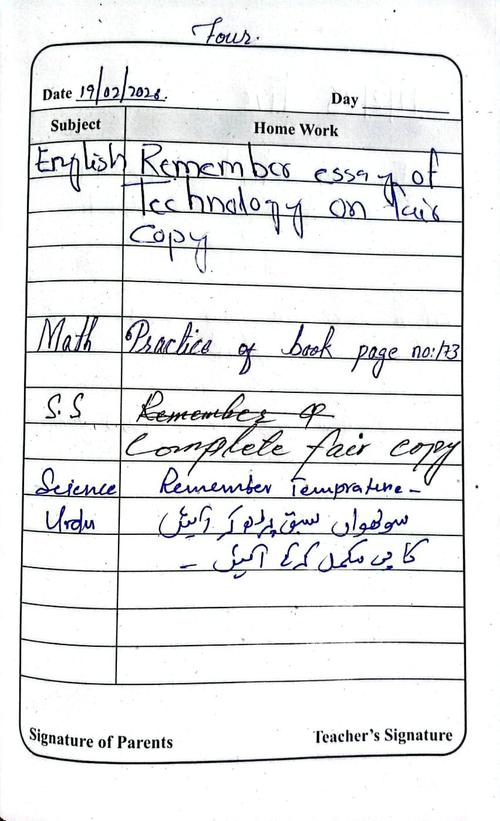 Four.
Date 19/02/2026. Day
Subject Home Work
English Remember essay of
Technology on fair
copy
Math Practice of book page no:173
S.S Remember Q
Complete fair copy
Science Remember Temprature-
Urdu سولھواں سبق پڑھ کر آئیں
کاپی مکمل کرکے آئیں ۔
Signature of Parents Teacher's Signature